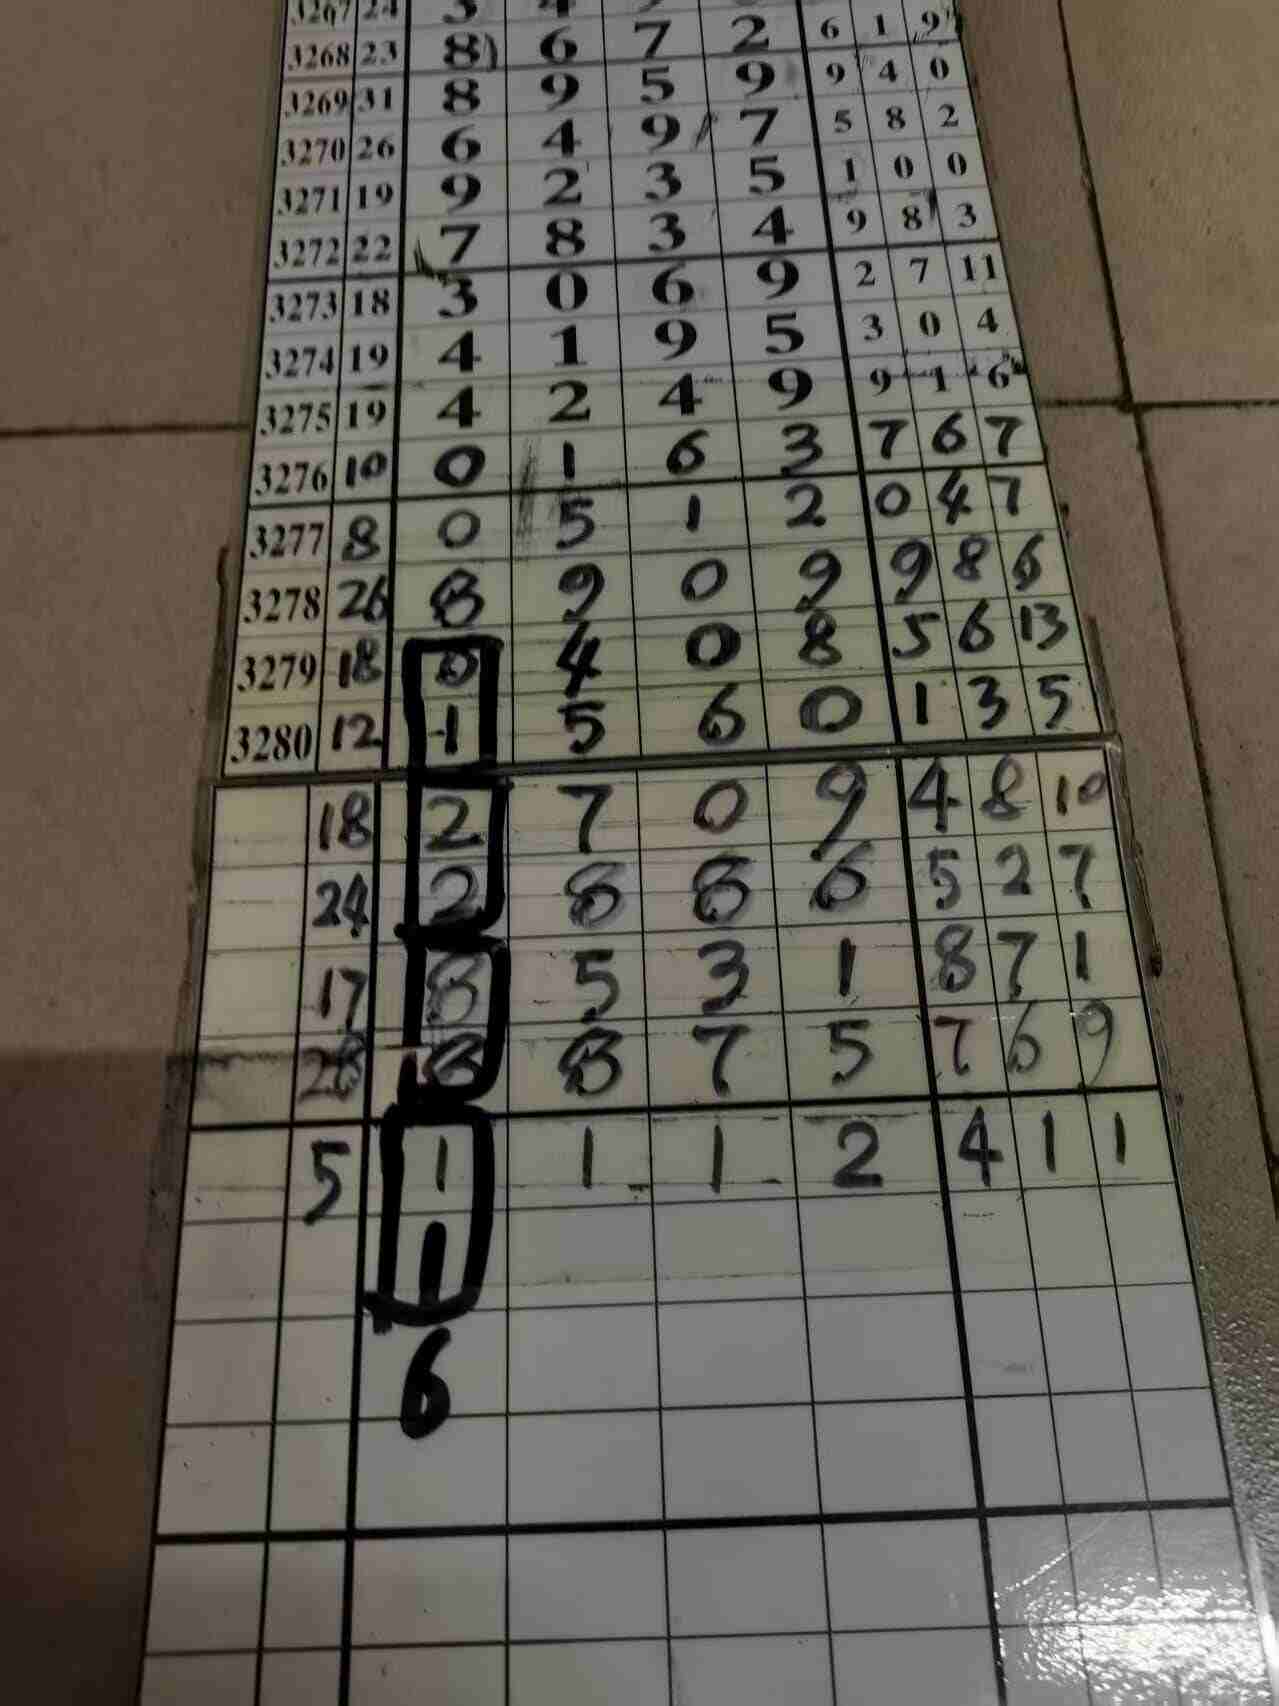 3267 24 3 4
3268 23 8) 6 7 2 6 1 9
3269 31 8 9 5 9 9 4 0
3270 26 6 4 9 7 5 8 2
3271 19 9 2 3 5 1 0 0
3272 22 7 8 3 4 9 8 3
3273 18 3 0 6 9 2 7 11
3274 19 4 1 9 5 3 0 4
3275 19 4 2 4 9 9 1 6
3276 10 0 1 6 3 7 6 7
3277 8 0 5 1 2 0 4 7
3278 26 8 9 0 9 9 8 6
3279 18 6 4 0 8 5 6 13
3280 12 1 5 6 0 1 3 5
18 2 7 0 9 4 8 10
24 2 8 8 6 5 2 7
17 8 5 3 1 8 7 1
28 8 8 7 5 7 6 9
5 1 1 1 2 4 1 1
1
6